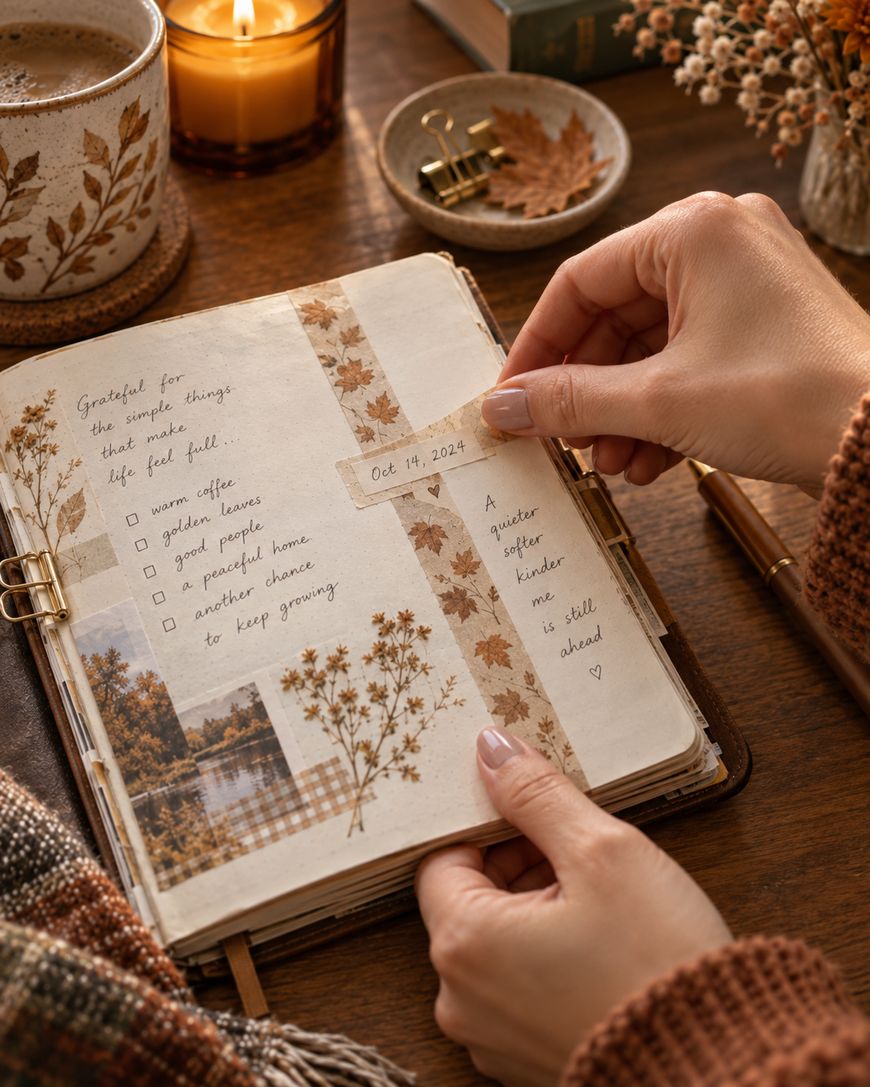 Grateful for
the simple things
that make
life feel full...
warm coffee
golden leaves
good people
a peaceful home
another chance
to keep growing
Oct 14, 2024
A
quieter
softer
kinder
me
is still
ahead